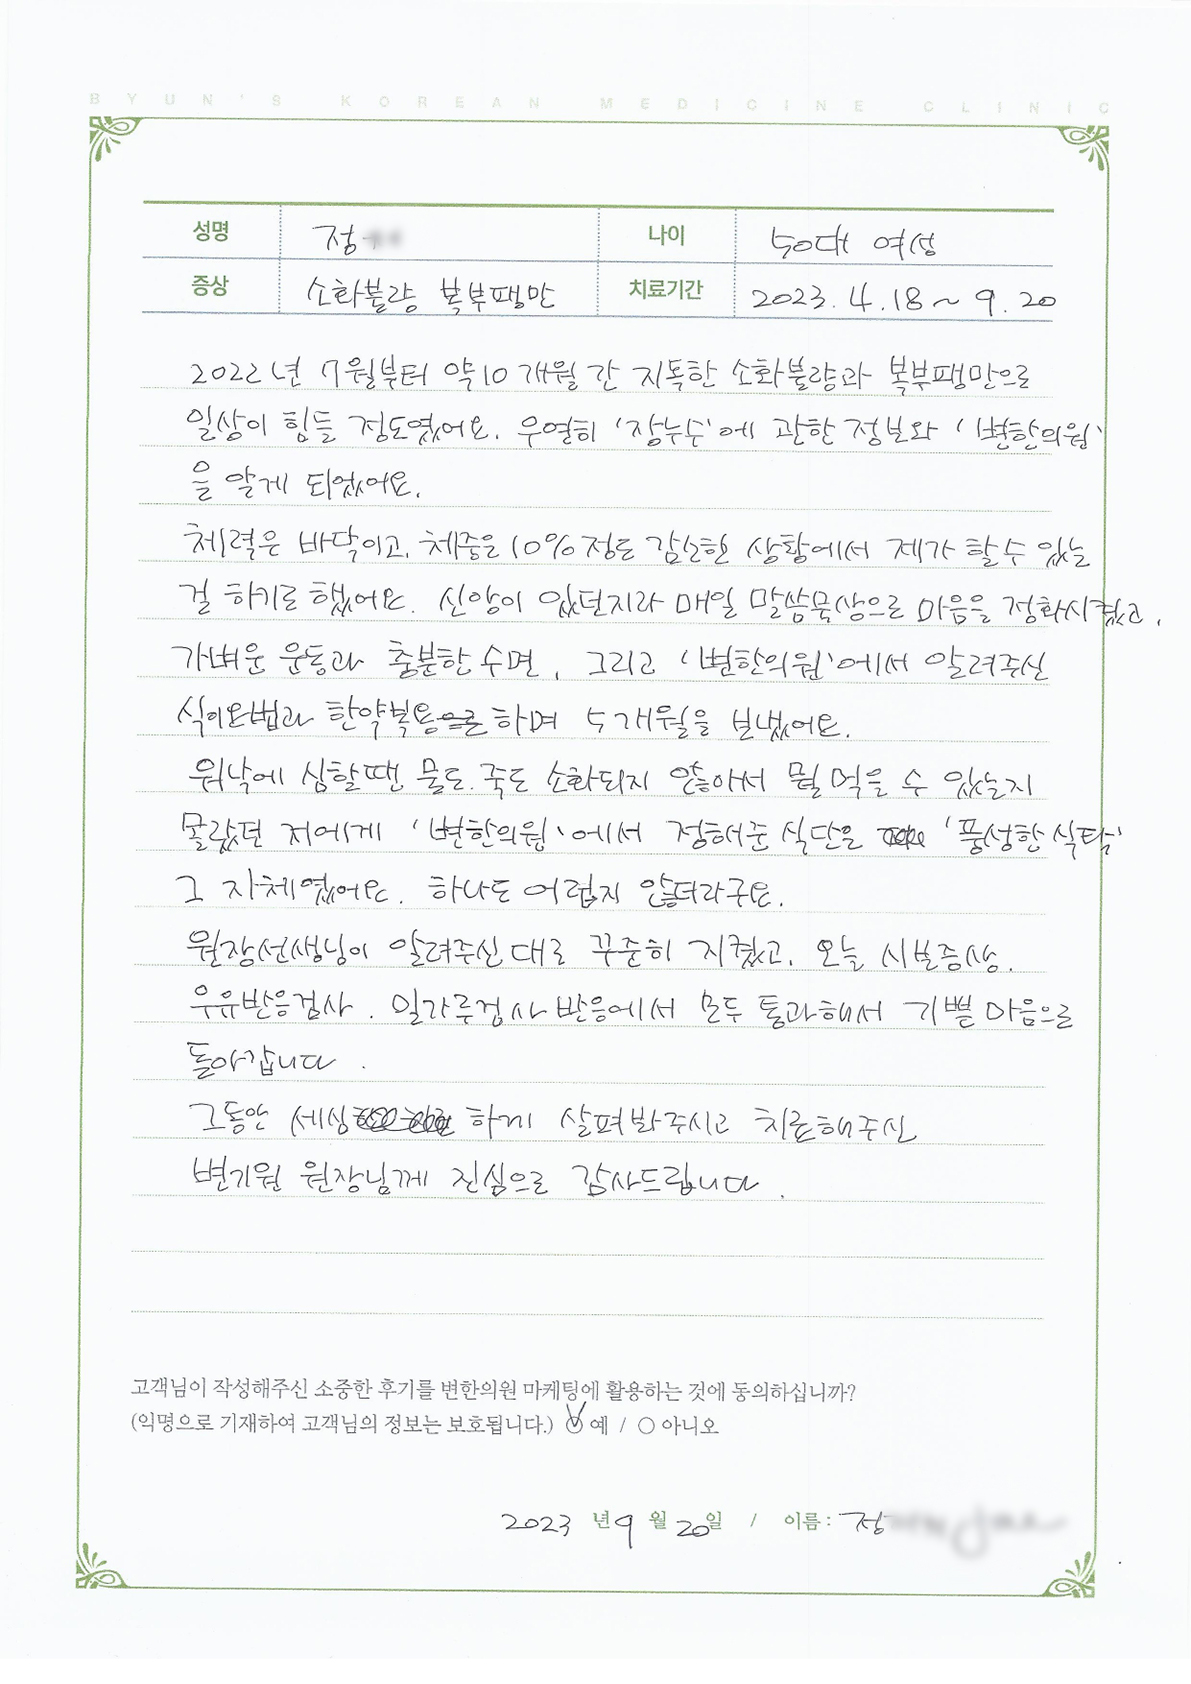 BYUN'S KOREAN MEDICINE CLINIC
성명 정 나이 50대 여성
증상 소화불량 복부팽만 치료기간 2023. 4. 18 ~ 9. 20
2022년 7월부터 약 10개월 간 지독한 소화불량과 복부팽만으로
일상이 힘들 정도였어요. 우연히 '장누수'에 관한 정보와 '변한의원'
을 알게 되었어요.
체력은 바닥이고, 체중은 10% 정도 감소한 상황에서 제가 할 수 있는
걸 하기로 했어요. 신앙이 있던지라 매일 말씀묵상으로 마음을 정화시켰고,
가벼운 운동과 충분한 수면, 그리고 '변한의원'에서 알려주신
식이요법과 한약복용 하며 5개월을 보냈어요.
워낙에 심할땐 물도. 죽도 소화되지 않아서 뭘 먹을 수 있는지
몰랐던 저에게 '변한의원'에서 정해준 식단은 '풍성한 식탁'
그 자체였어요. 하나도 어렵지 않더라구요.
원장선생님이 알려주신 대로 꾸준히 지켰고, 오늘 시보증상.
우유반응검사. 밀가루검사 반응에서 모두 통과해서 기쁠 마음으로
돌아갑니다.
그동안 세심 하게 살펴봐주시고 치료해주신
변기원 원장님께 진심으로 감사드립니다.
고객님이 작성해주신 소중한 후기를 변한의원 마케팅에 활용하는 것에 동의하십니까?
(익명으로 기재하여 고객님의 정보는 보호됩니다.) ○ 예 / ○ 아니오
2023 년 9 월 20 일 / 이름 : 정